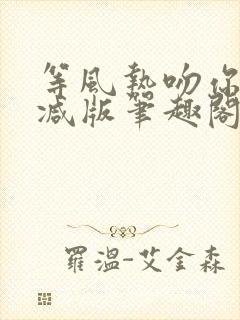 等風熱吻你
减版筆趣閣
羅溫-艾金森